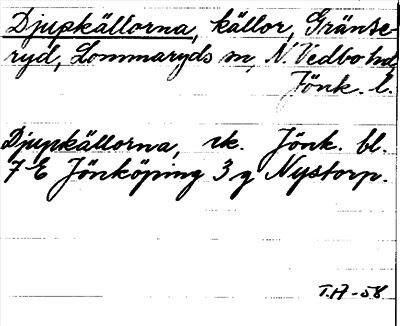 Djupkällorna, källor, Gränse-
ryd, Lommaryds sn, N. Vedbo hd,
Jönk. l.
Djupkällorna, ek. Jönk. bl.
7 E Jönköping 3 g Nystorp.
T.H-58